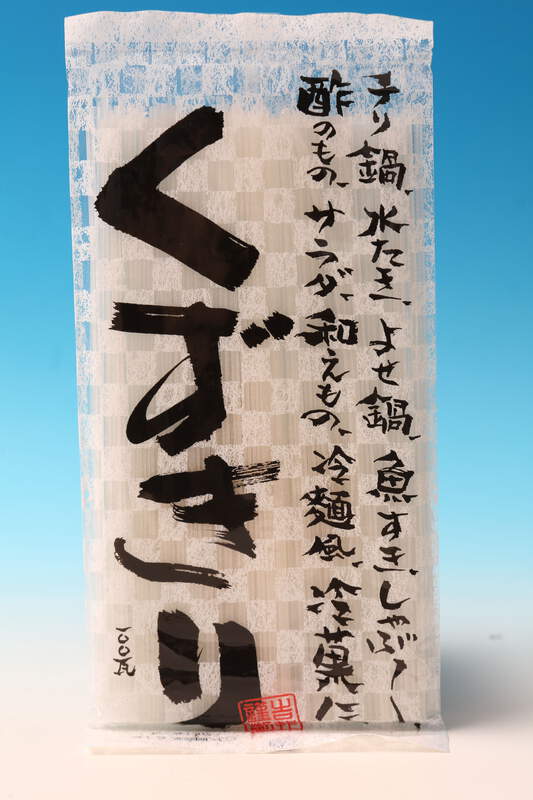 チリ鍋、水たき、よせ鍋、魚すき、しゃぶ〱
酢のもの、サラダ、和えもの、冷麺風、冷菓に
くずきり
一〇〇瓦